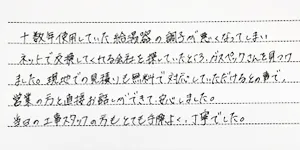 十数年使用していた給湯器の調子が悪くなってしまい
ネットで交換してくれる会社を探していたところ、ガスペックさんを見つけ
ました。現地での見積りも無料で対応していただけるとの事で、
営業の方と直接お話しができて、安心しました。
当日の工事スタッフの方もとても手際よく、丁寧でした。